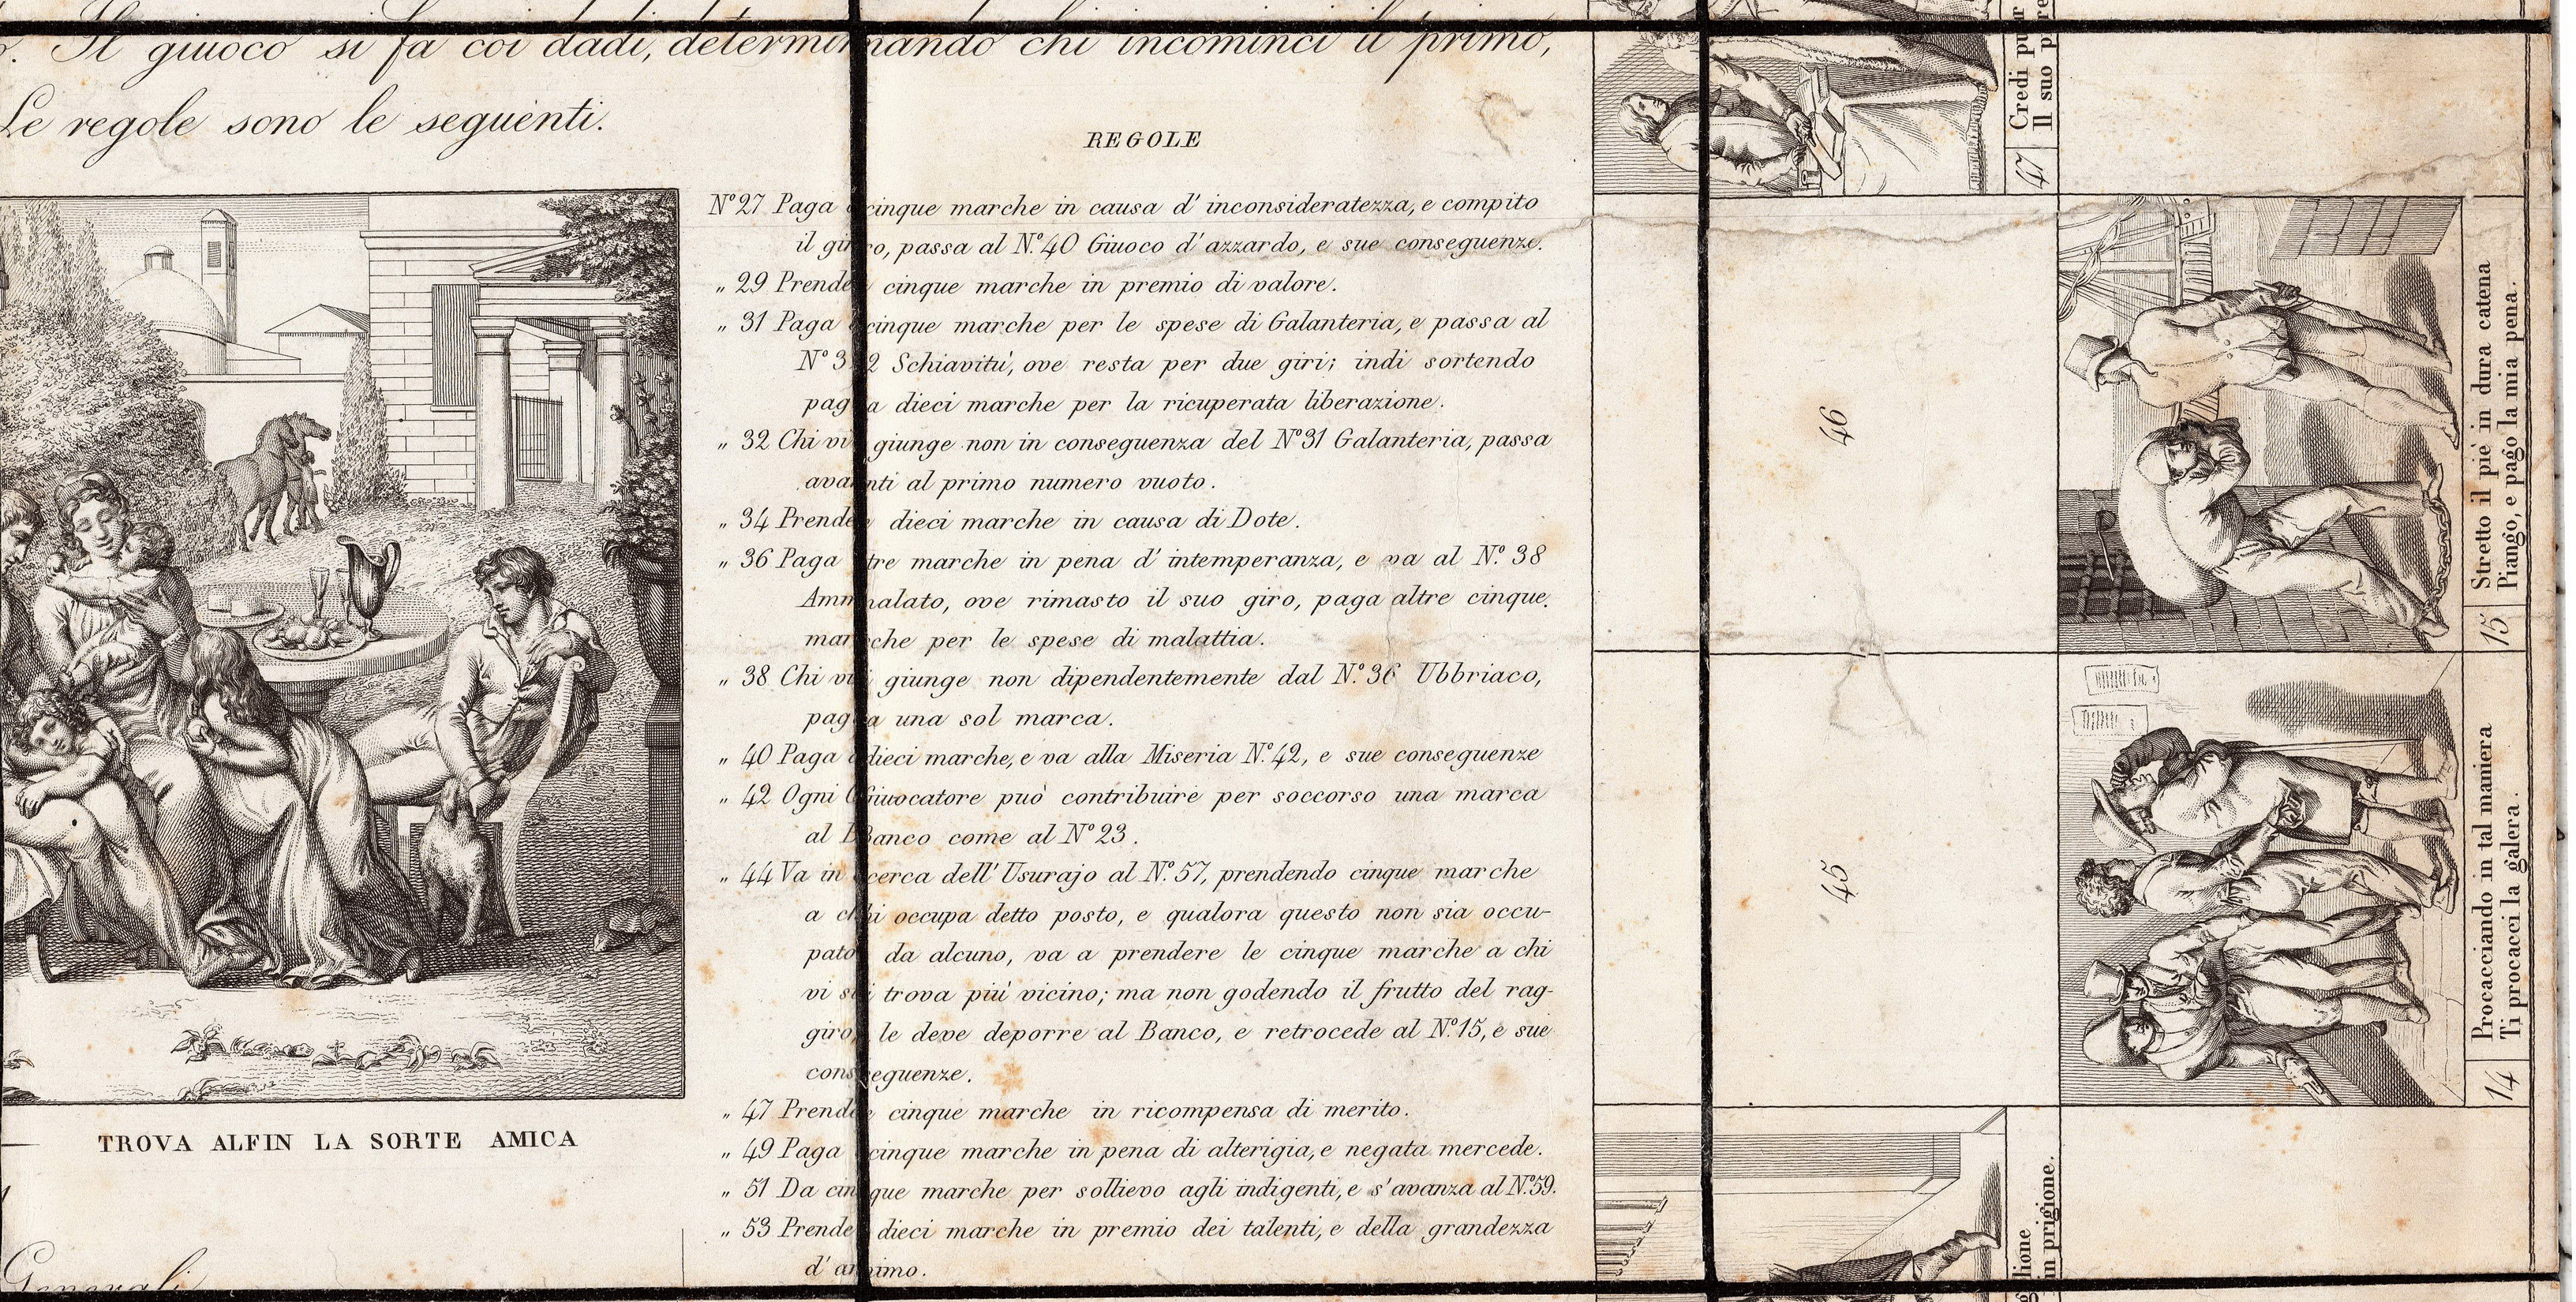 . Il giuoco si fa coi dadi, determinando chi incominci il primo,
Le regole sono le seguenti.
REGOLE
Nº 27 Paga cinque marche in causa d' inconsideratezza, e compito
il giro, passa al Nº. 40 Giuoco d' azzardo, e sue conseguenze.
„ 29 Prende cinque marche in premio di valore.
„ 31 Paga cinque marche per le spese di Galanteria, e passa al
Nº 32 Schiavitù, ove resta per due giri; indi sortendo
paga dieci marche per la ricuperata liberazione.
„ 32 Chi vi giunge non in conseguenza del Nº 31 Galanteria, passa
avanti al primo numero vuoto.
„ 34 Prende dieci marche in causa di Dote.
„ 36 Paga tre marche in pena d' intemperanza, e va al Nº. 38
Ammalato, ove rimasto il suo giro, paga altre cinque
marche per le spese di malattia.
„ 38 Chi vi giunge non dipendentemente dal Nº. 36 Ubbriaco,
paga una sol marca.
„ 40 Paga dieci marche, e va alla Miseria Nº. 42, e sue conseguenze
„ 42 Ogni Giuocatore può contribuire per soccorso una marca
al Banco come al Nº 23.
„ 44 Va in cerca dell' Usurajo al Nº. 57, prendendo cinque marche
a chi occupa detto posto, e qualora questo non sia occu-
pato da alcuno, va a prendere le cinque marche a chi
vi si trova più vicino; ma non godendo il frutto del rag-
giro, le deve deporre al Banco, e retrocede al Nº. 15, e sue
conseguenze.
„ 47 Prende cinque marche in ricompensa di merito.
„ 49 Paga cinque marche in pena di alterigia, e negata mercede.
„ 51 Da cinque marche per sollievo agli indigenti, e s' avanza al Nº. 59.
„ 53 Prende dieci marche in premio dei talenti, e della grandezza
d' animo.
TROVA ALFIN LA SORTE AMICA
Generali
47
Credi pur
Il suo
46
45
15
Stretto il piè in dura catena
Piango, e pago la mia pena.
14
Procacciando in tal maniera
Ti procacci la galera.
in prigione.